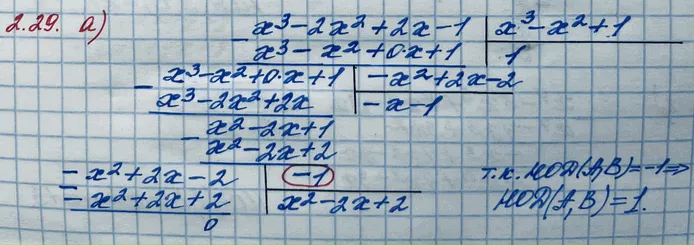 2.29. а) x³-2x²+2x-1 | x³-x²+1
- x³-x²+0·x+1 | 1
- x³-x²+0·x+1 | -x²+2x-2
x³-2x²+2x | -x-1
- x²-2x+1
x²-2x+2
- -x²+2x-2 | -1
-x²+2x+2 | x²-2x+2
0
т.к. НОД(A,B)=-1⇒
НОД(A,B)=1.